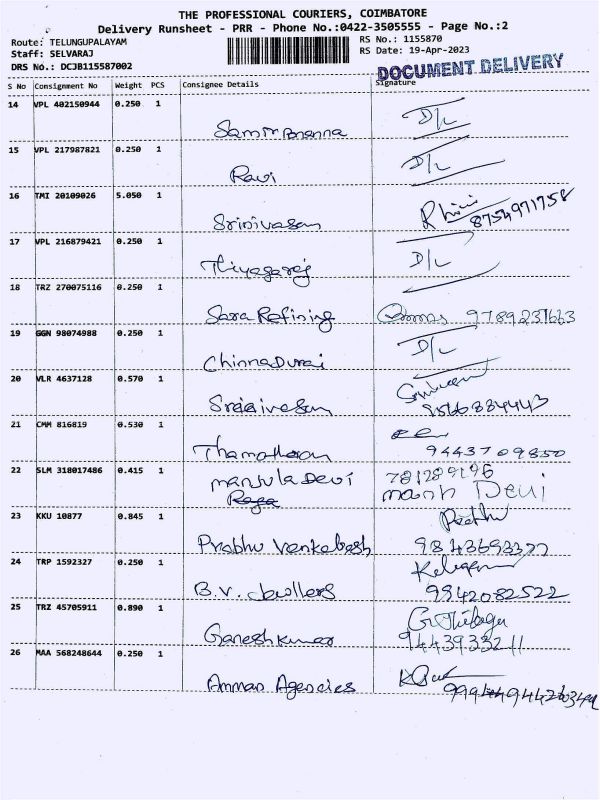 THE PROFESSIONAL COURIERS, COIMBATORE
Delivery Runsheet - PRR - Phone No.:0422-3505555 - Page No.:2
Route: TELUNGUPALAYAM RS No.: 1155870
Staff: SELVARAJ RS Date: 19-Apr-2023
DRS No.: DCJB115587002 DOCUMENT DELIVERY
S No Consignment No Weight PCS Consignee Details Signature
14 VPL 402150944 0.250 1
D/L
15 VPL 217987821 0.250 1
D/L
Ravi
16 TMI 20109026 5.050 1
Srinivasan 8754971758
17 VPL 216879421 0.250 1
Thiyagaraj D/L
18 TRZ 270075116 0.250 1
Sara Refining 9789237663
19 GGN 98074988 0.250 1
ChinnaDurai D/L
20 VLR 4637128 0.570 1
9566884443
21 CMM 816819 0.530 1
9443709850
22 SLM 318017486 0.415 1
Manjula Devi 781289196
Devi
23 KKU 10877 0.845 1
Prabhu Venkatesh
24 TRP 1592327 0.250 1
B.V. 9942082522
25 TRZ 45705911 0.890 1
Ganeshkumar 9443933211
26 MAA 568248644 0.250 1
Amman Agencies